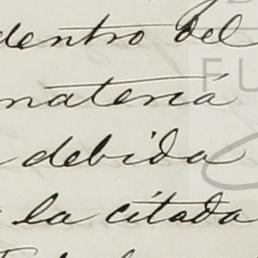 dentro del
materia
debida
la citada